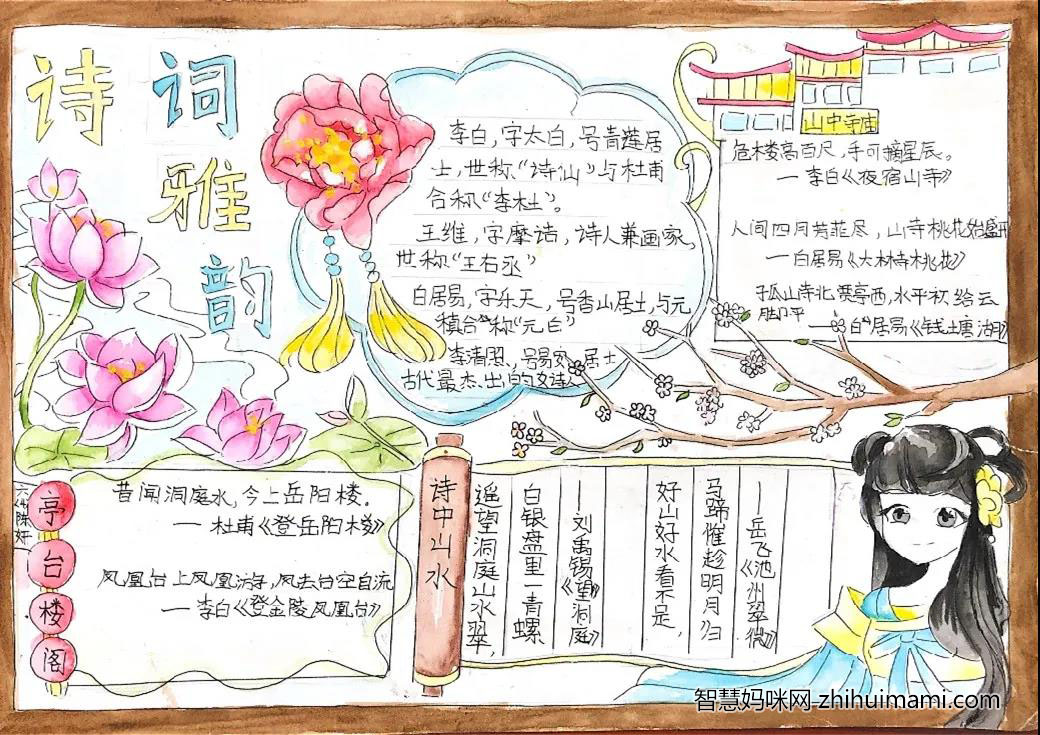 诗词
雅
韵
李白，字太白，号青莲居
士，世称“诗仙”与杜甫
合称“李杜”。
王维，字摩诘，诗人兼画家，
世称“王右丞”
白居易，字乐天，号香山居士，与元
稹合称“元白”
李清照，号易安居士
古代最杰出的女诗人
山中寺庙
危木楼高百尺，手可摘星辰。
—李白《夜宿山寺》
人间四月芳菲尽，山寺桃花始盛开
—白居易《大林寺桃花》
孤山寺北贾亭西，水平初给云
脚平
—白居易《钱塘湖》
六(4)陈妍
亭台楼阁
昔闻洞庭水，今上岳阳楼。
—杜甫《登岳阳楼》
凤凰台上凤凰游，凤去台空自流
—李白《登金陵凤凰台》
诗中山水
遥望洞庭山水翠，
白银盘里一青螺
—刘禹锡《望洞庭》
好山好水看不足，
马蹄催趁明月归
—岳飞《池州翠微》
智慧妈咪网-zhihuimami.com